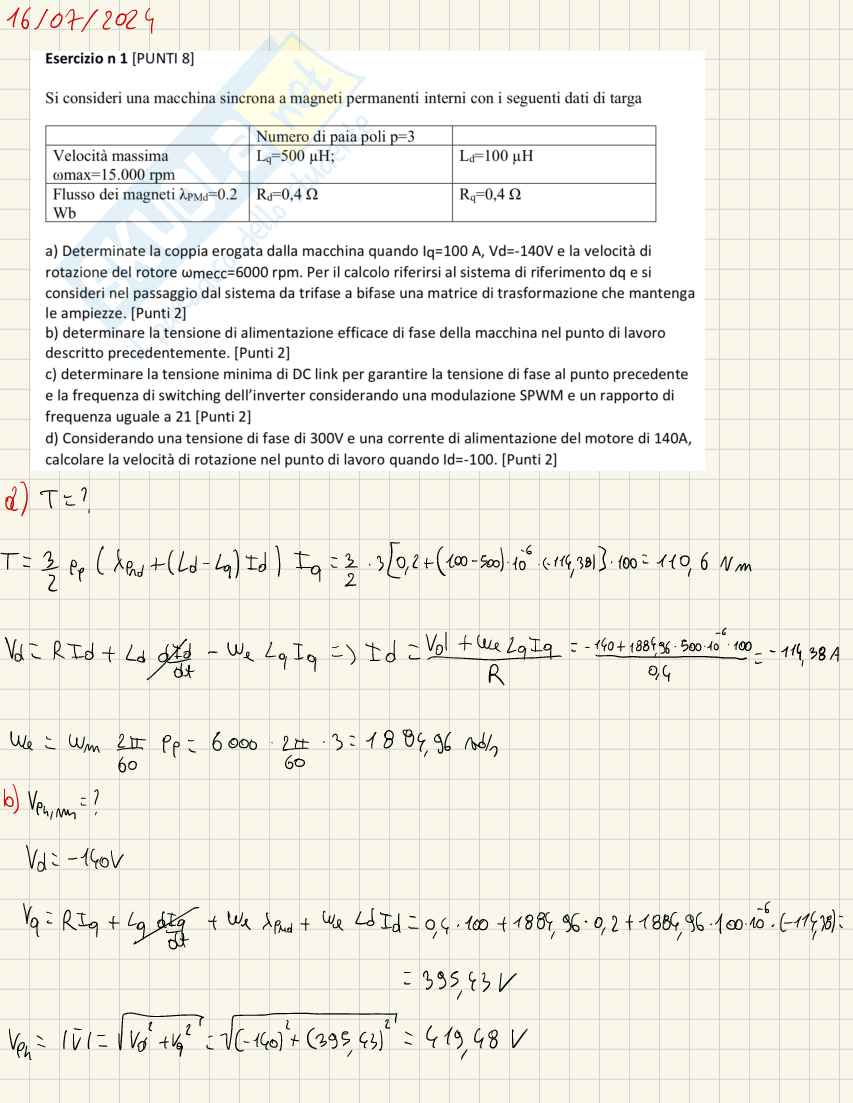 16/07/2024
Esercizio n 1 [PUNTI 8]
Si consideri una macchina sincrona a magneti permanenti interni con i seguenti dati di targa
Numero di paia poli p=3
Velocità massima ωmax=15.000 rpm Lq=500 µH; Ld=100 µH
Flusso dei magneti λPMd=0.2 Wb Rd=0,4 Ω Rq=0,4 Ω
a) Determinate la coppia erogata dalla macchina quando Iq=100 A, Vd=-140V e la velocità di
rotazione del rotore ωmecc=6000 rpm. Per il calcolo riferirsi al sistema di riferimento dq e si
consideri nel passaggio dal sistema da trifase a bifase una matrice di trasformazione che mantenga
le ampiezze. [Punti 2]
b) determinare la tensione di alimentazione efficace di fase della macchina nel punto di lavoro
descritto precedentemente. [Punti 2]
c) determinare la tensione minima di DC link per garantire la tensione di fase al punto precedente
e la frequenza di switching dell'inverter considerando una modulazione SPWM e un rapporto di
frequenza uguale a 21 [Punti 2]
d) Considerando una tensione di fase di 300V e una corrente di alimentazione del motore di 140A,
calcolare la velocità di rotazione nel punto di lavoro quando Id=-100. [Punti 2]
a) T=?
T = 3/2 Pp (λPMd + (Ld - Lq) Id) Iq = 3/2 · 3[0,2+(100-500)·10^-6·(-114,38)]·100 = 110,6 Nm
Vd = RId + Ld dId/dt - ωe Lq Iq => Id = (Vd + ωe Lq Iq)/R = (-140+1884,96·500·10^-6·100)/0,4 = -114,38 A
ωe = ωm 2π/60 Pp = 6000 · 2π/60 · 3 = 1884,96 rad/s
b) Vph,rms = ?
Vd = -140V
Vq = RIq + Lq dIq/dt + ωe λPMd + ωe Ld Id = 0,4·100+1884,96·0,2+1884,96·100·10^-6·(-114,38)=
= 395,43 V
Vph = |V̄| = √(Vd² + Vq²) = √((-140)² + (395,43)²) = 419,48 V